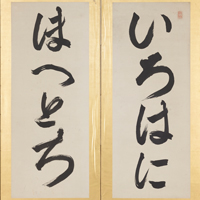 いろはに
ほへとち